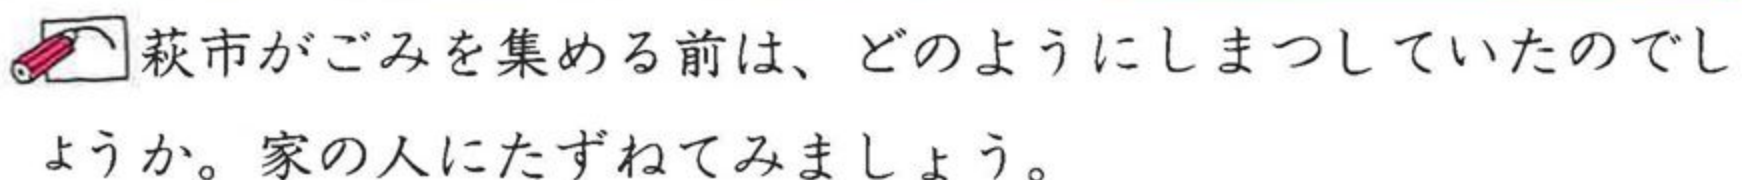 萩市がごみを集める前は、どのようにしまつしていたのでし
ょうか。家の人にたずねてみましょう。